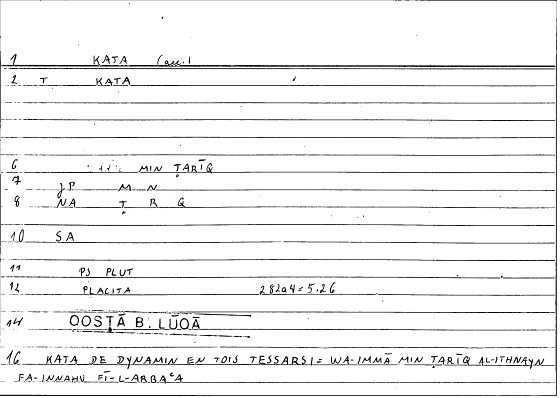 1 KATA (acc.)
2 T KATA
6 MIN ṬARĪQ
7 JP M N
8 NA Ṭ R Q
10 SA
11 PS PLUT
12 PLACITA 282a4=5.26
14 QOSṬĀ B. LŪQĀ
16 KATA DE DYNAMIN EN TOIS TESSARSI = WA-IMMĀ MIN ṬARĪQ AL-ITHNAYN
FA-INNAHU FĪ-L-ARBAʿA